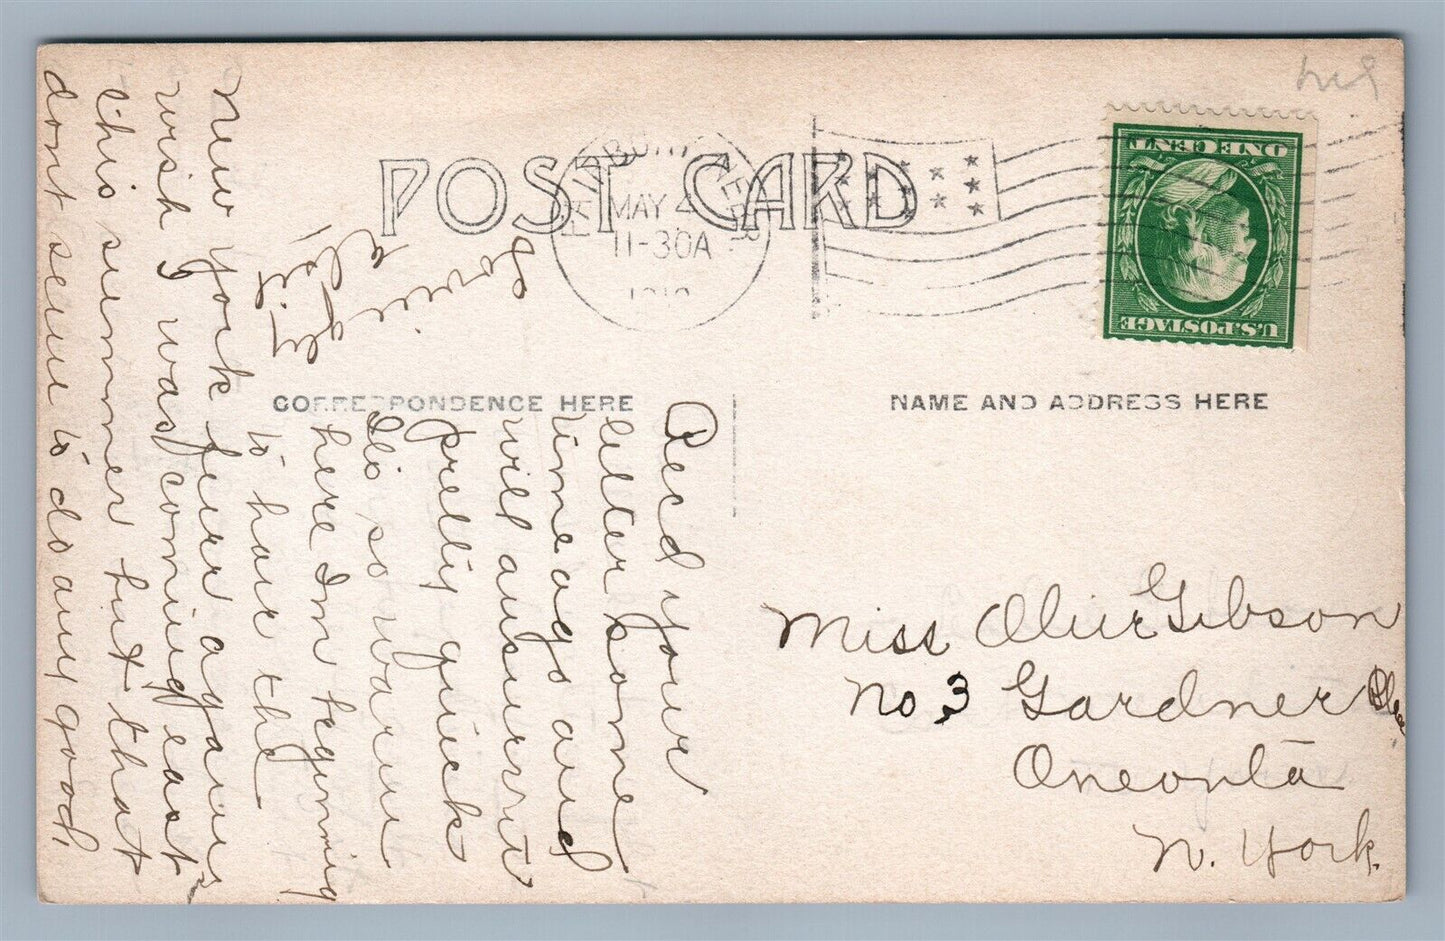 POST CARD
MAY 4
11-30A
ONE CENT
U.S. POSTAGE
CORRESPONDENCE HERE
NAME AND ADDRESS HERE
Recd your
letter some
time ago and
will answer it
pretty quick
Its so warm
here Im begining
to have the
New York fever again
wish I was coming east
this summer but that
dont seem to do any good.
Miss Olive Gibson
No 3 Gardner Place
Oneonta
N. York.